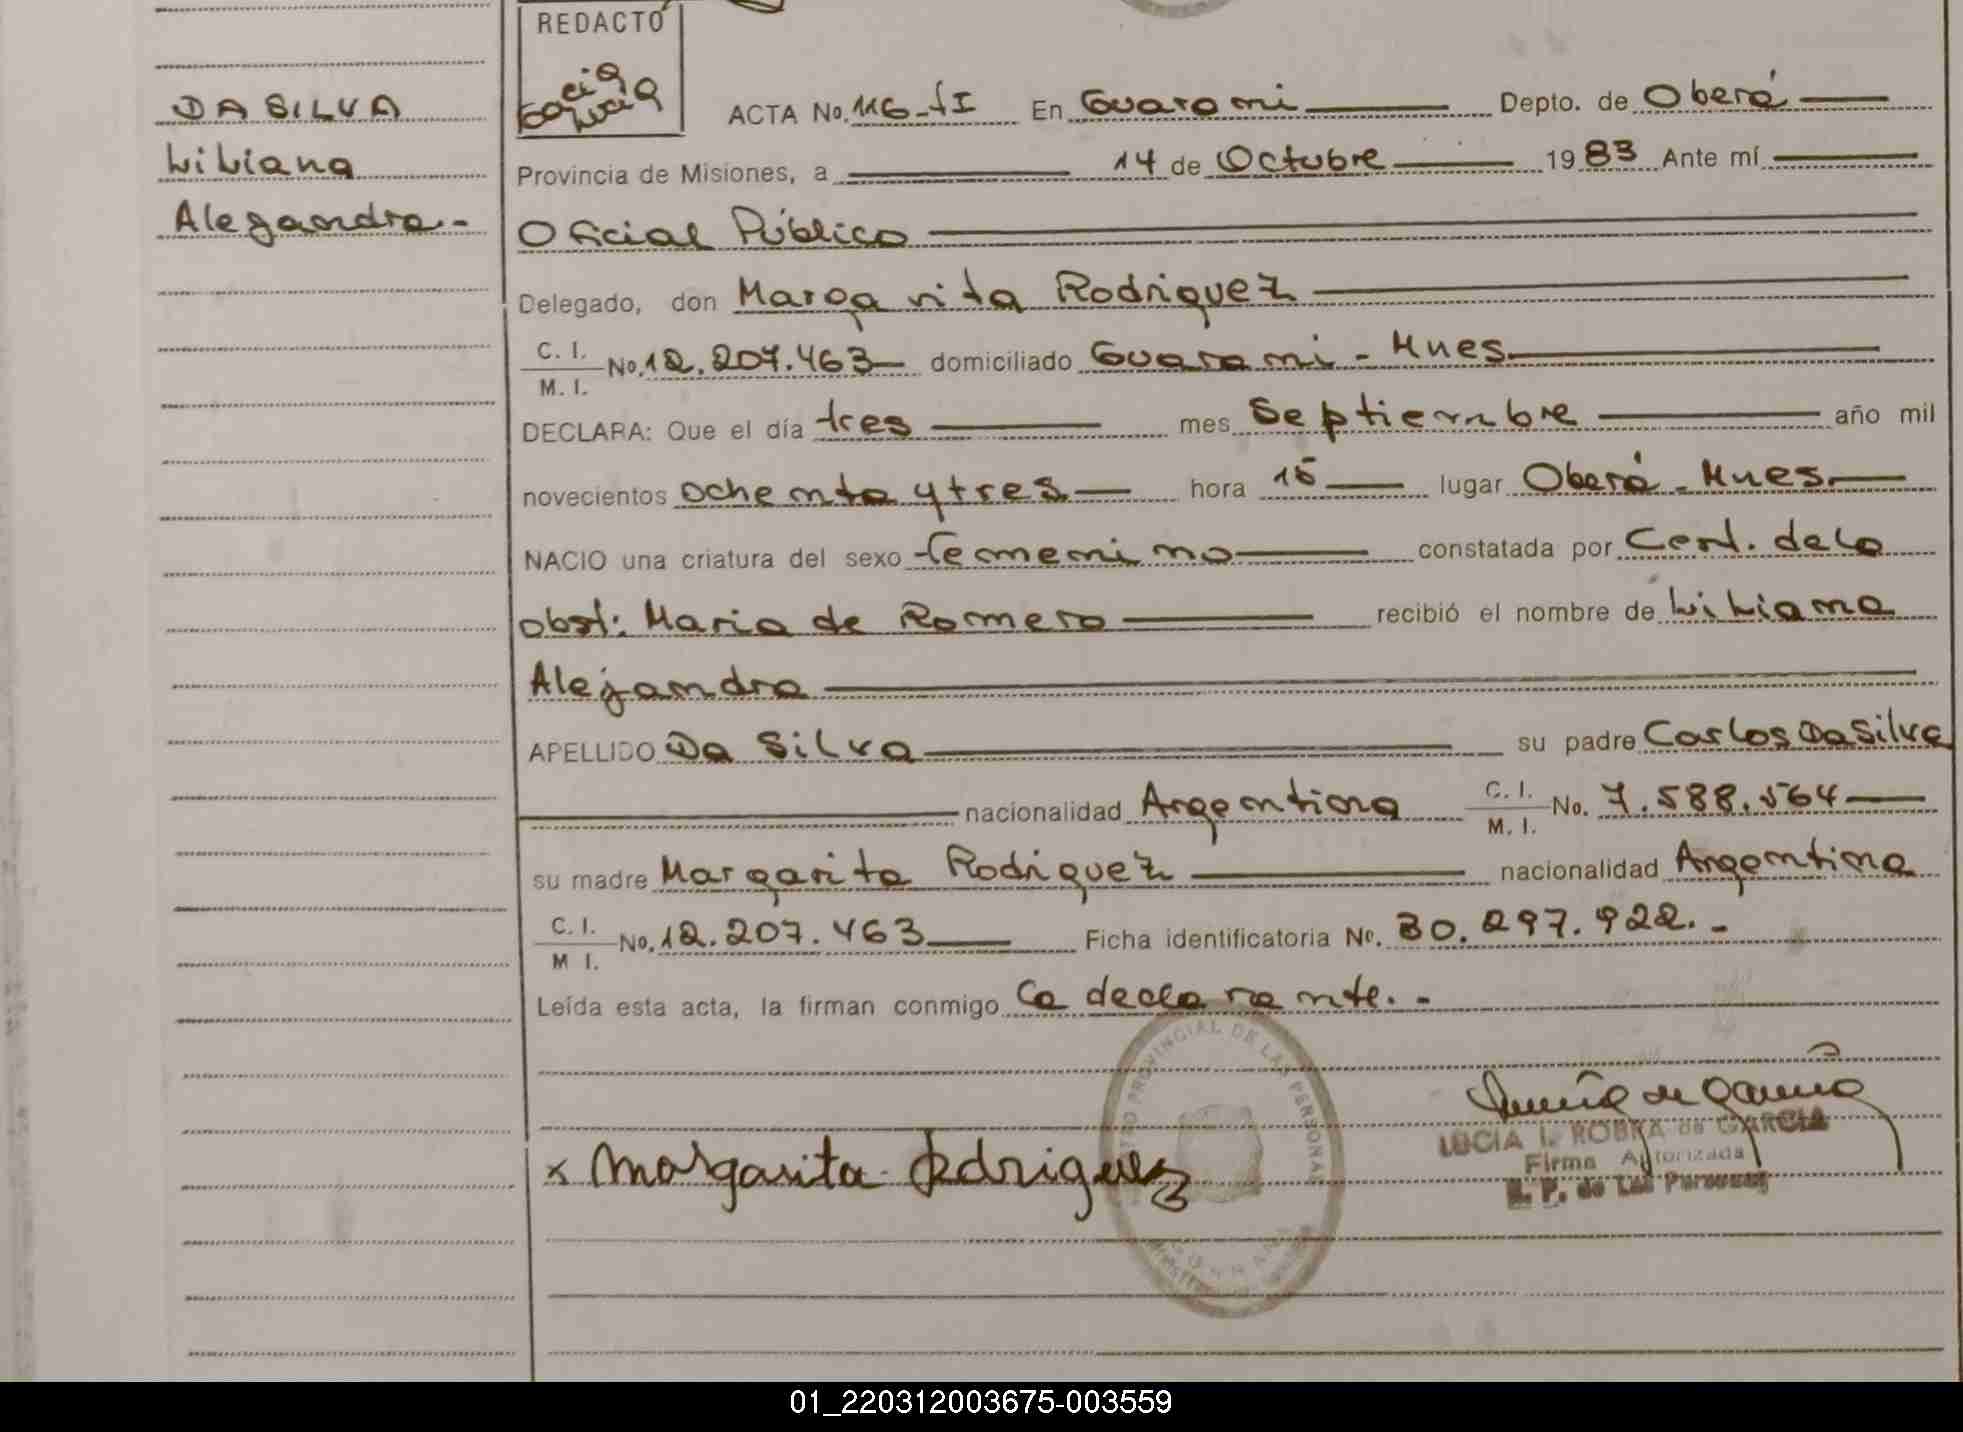 REDACTÓ
DA SILVA
Liliana
Alegandra.-
ACTA No. 116-fI En Guarani Depto. de Oberá
Provincia de Misiones, a 14 de Octubre 1983 Ante mí
Oficial Público
Delegado, don Margarita Rodriguez
C. I. M. I. No. 12.207.463 domiciliado Guarani - Mnes
DECLARA: Que el día tres mes Septiembre año mil
novecientos ochenta y tres hora 15 lugar Oberá - Mnes.
NACIO una criatura del sexo femenino constatada por Cert. de la
obst: Maria de Romero recibió el nombre de Liliana
Alejandra
APELLIDO Da Silva su padre Carlos Da Silva
nacionalidad Argentina C. I. M. I. No. 7.588.564
su madre Margarita Rodriguez nacionalidad Argentina
C. I. M I. No. 12.207.463 Ficha identificatoria No. 30.297.922.-
Leída esta acta, la firman conmigo la declarante.-
PROVINCIAL DE LAS PERSONAS
x Margarita Rodriguez
LUCIA I. ROBKA de GARCIA
Firma Autorizada
R. P. de Las Personas
01_220312003675-003559